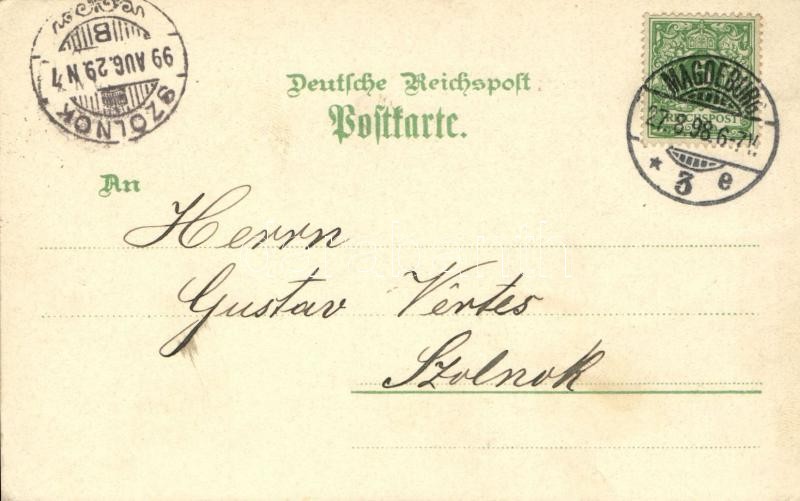 SZOLNOK
99 AUG. 29. N 7
B
MAGDEBURG
27.8.98.6-7V.
* 3 e
REICHSPOST
Deutsche Reichspost
Postkarte.
An
Herrn
Gustav Vértes
Szolnok